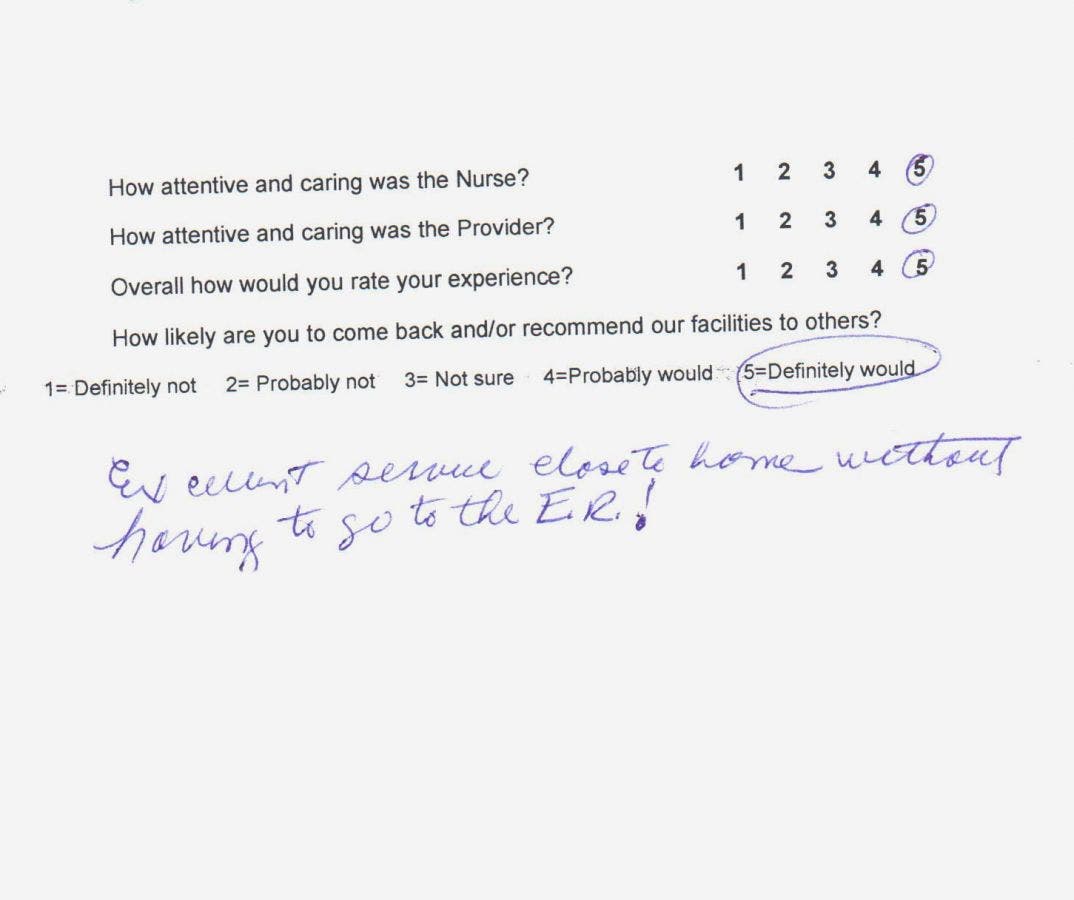 How attentive and caring was the Nurse? 1 2 3 4 5
How attentive and caring was the Provider? 1 2 3 4 5
Overall how would you rate your experience? 1 2 3 4 5
How likely are you to come back and/or recommend our facilities to others?
1= Definitely not 2= Probably not 3= Not sure 4=Probably would 5=Definitely would
Excellent service close to home without
having to go to the E.R.!